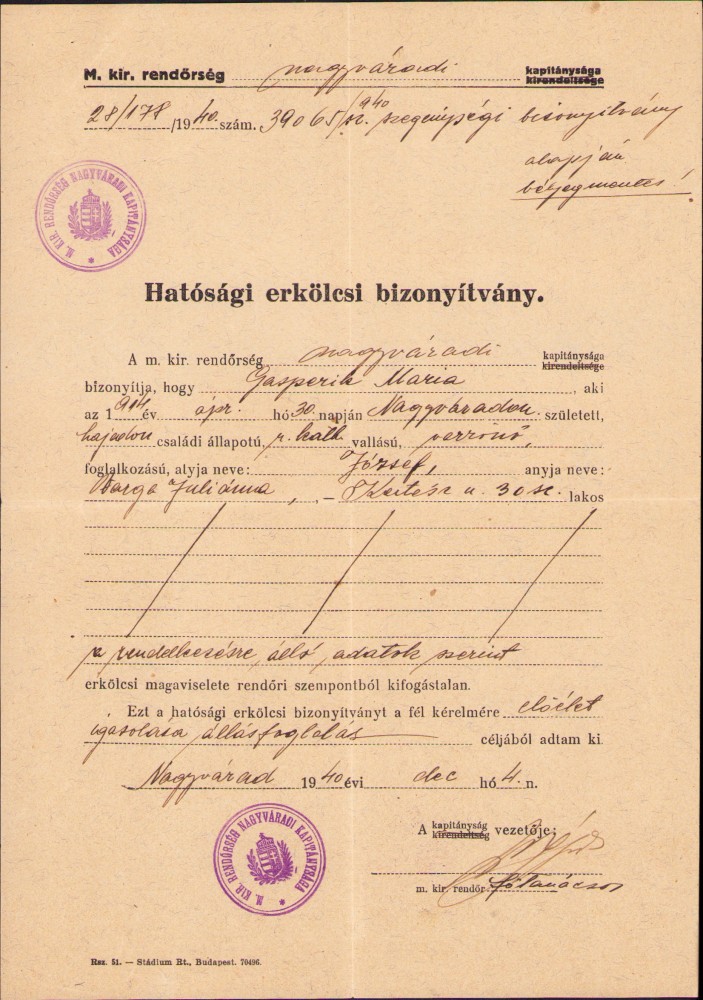 M. kir. rendőrség nagyváradi kapitánysága kirendeltsége
28/178 /1940. szám. 39065/1940 sz. szegénységi bizonyitvány
alapján
bélyegmentes!
M. KIR. RENDŐRSÉG NAGYVÁRADI KAPITÁNYSÁGA
Hatósági erkölcsi bizonyítvány.
A m. kir. rendőrség nagyváradi kapitánysága kirendeltsége
bizonyítja, hogy Gasparik Maria, aki
az 1914 év ápr. hó 30 napján Nagyváradon született,
hajadon családi állapotú, r. kath vallású, varrónő,
foglalkozású, atyja neve: József, anyja neve:
Varga Juliánna, – Kertész u. 30 sz. lakos
a rendelkezésre álló adatok szerint
erkölcsi magaviselete rendőri szempontból kifogástalan.
Ezt a hatósági erkölcsi bizonyítványt a fél kérelmére előélet
igazolása állásfoglalás céljából adtam ki.
Nagyvárad 1940 évi dec hó 4. n.
M. KIR. RENDŐRSÉG NAGYVÁRADI KAPITÁNYSÁGA
A kapitányság kirendeltség vezetője:
m. kir. rendőr főtanácsos
Rsz. 51. — Stádium Rt., Budapest. 70496.